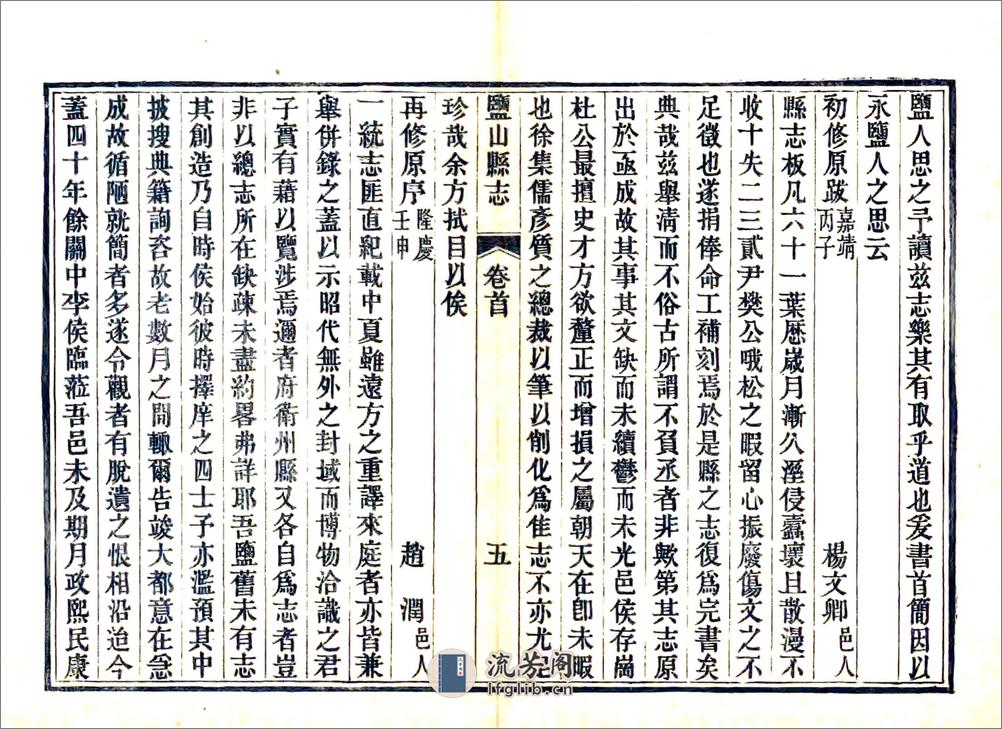 鹽人思之予讀兹志樂其有取乎道也爰書首簡因以
永鹽人之思云
初修原跋 嘉靖丙子 楊文卿 邑人
縣志板凡六十一葉歷歲月漸久溼侵蠹壞且散漫不
收十失二三貳尹樊公哦松之暇留心振廢傷文之不
足徵也遂捐俸命工補刻焉於是縣之志復爲完書矣
典哉兹舉清而不俗古所謂不負丞者非歟第其志原
出於亟成故其事其文缺而未續鬱而未光邑侯存崗
杜公最擅史才方欲釐正而增損之屬朝天在卽未暇
也徐集儒彥質之總裁以筆以削化爲隹志不亦尤足
珍哉余方拭目以俟
鹽山縣志 卷首 五
再修原序 隆慶壬申 趙潤 邑人
一統志匪直紀載中夏雖遠方之重譯來庭者亦皆兼
舉併錄之蓋以示昭代無外之封域而博物洽識之君
子實有藉以覽涉焉邇者府衛州縣又各自爲志者豈
非以總志所在缺疎未盡約畧弗詳耶吾鹽舊未有志
其創造乃自時侯始彼時擇庠之四士予亦濫預其中
披搜典籍詢咨故老數月之間輙爾告竣大都意在急
成故循陋就簡者多遂令觀者有脫遺之恨相沿迨今
蓋四十年餘關中李侯臨蒞吾邑未及期月政熙民康
流芳阁
lfglib.cn